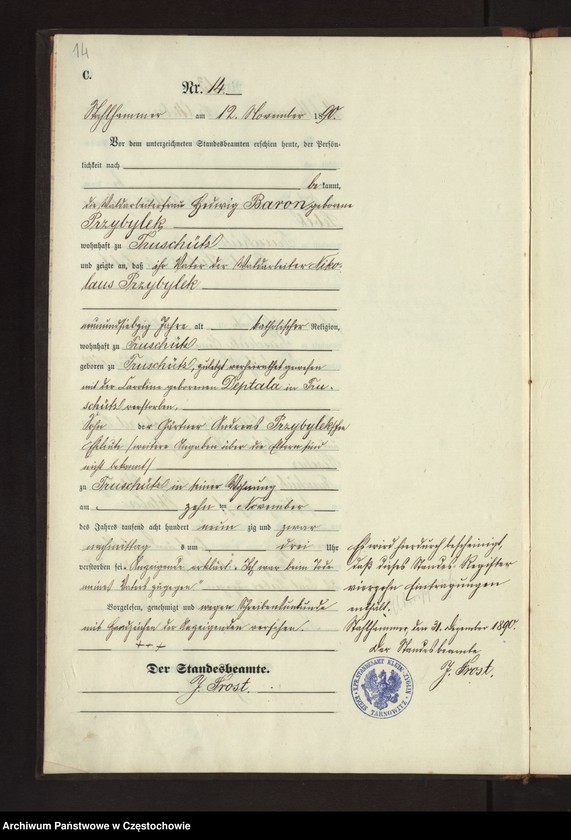 14
C.
Nr. 14.
Stahlhammer am 12. November 1890.
Vor dem unterzeichneten Standesbeamten erschien heute, der Persön-
lichkeit nach
bekannt,
die Waldarbeiterfrau Hedwig Baron geborene
Przybylek
wohnhaft zu Truschütz
und zeigte an, daß ihr Vater der Waldarbeiter Niko-
laus Przybylek
neunundsiebzig Jahre alt katholischer Religion,
wohnhaft zu Truschütz
geboren zu Truschütz, zuletzt verheirathet gewesen
mit der Caroline geborenen Deptala in Tru-
schütz verstorben.
Sohn der Gärtner Andreas Przybylek'schen
Eheleute (weitere Angaben über die Eltern sind
nicht bekannt)
zu Truschütz in seiner Wohnung
am zehn ten November
des Jahres tausend acht hundert neun zig und zwar
nachmittag s um drei Uhr
verstorben sei. Anzeigende erklärt: "Ich war beim Tode
meines Vaters zugegen"
Vorgelesen, genehmigt und wegen Schreibensunkunde
mit Handzeichen der Anzeigenden versehen.
+++
Der Standesbeamte.
J. Frost.
Es wird hierdurch bescheinigt,
daß dieses Standes-Register
vierzehn Eintragungen
enthält.
Stahlhammer, den 31. Dezember 1890.
Der Standesbeamte
J. Frost.
KPR. STANDESAMT KLEIN-ZYGLIN
TARNOWITZ
Archiwum Państwowe w Częstochowie